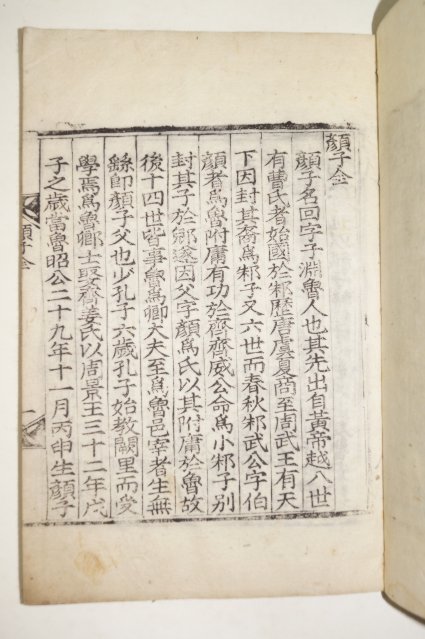 顔子全
顔子名回字子淵魯人也其先出自黃帝越八世
有曹氏者始國於邾歷唐虞夏商至周武王有天
下因封其裔爲邾子又六世而春秋邾武公字伯
顔者爲魯附庸有功於齊齊威公命爲小邾子別
封其子於郳遂因父字顔爲氏以其附庸於魯故
後十四世皆事魯爲卿大夫至爲魯邑宰者生無
繇卽顔子父也少孔子六歲孔子始敎闕里而受
學焉爲魯卿士娶齊姜氏以周景王三十二年戊
子之歲當魯昭公二十九年十一月丙申生顔子
顔子全
一